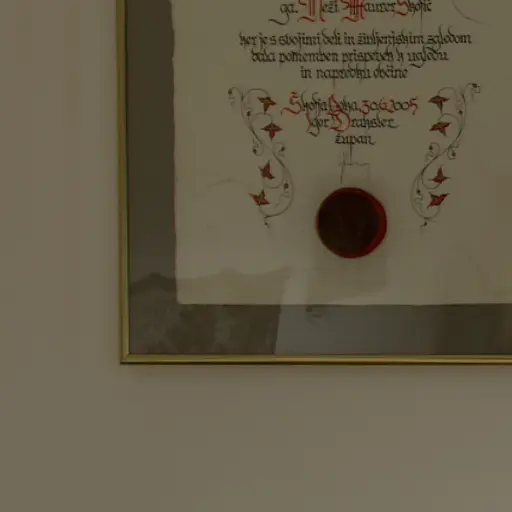 ga. Neži Maurer Škofic
ker je s svojimi deli in življenjskim zgledom
dala pomemben prispevek k ugledu
in napredku občine
Škofja Loka, 30.6.2005
Igor Draksler
župan